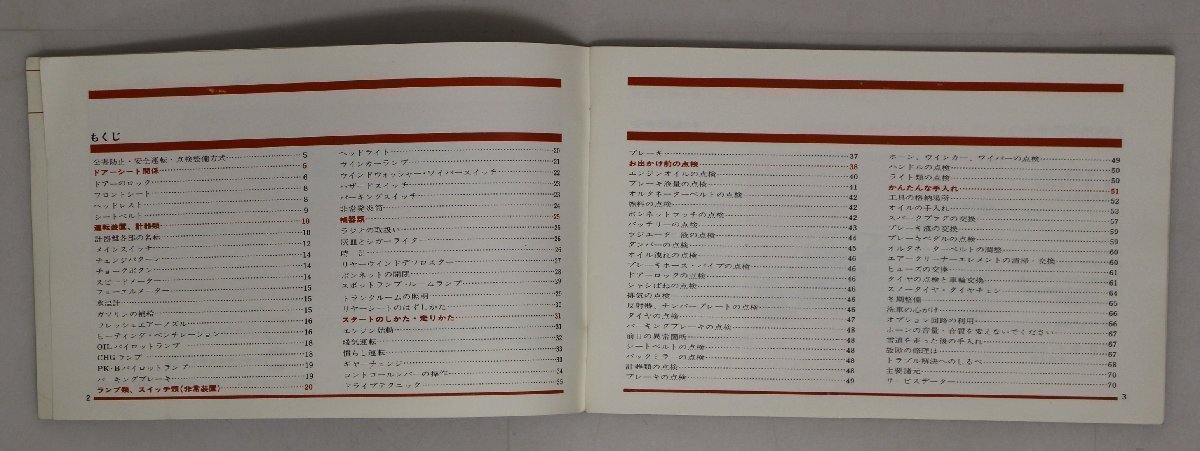 もくじ
公害防止・安全運転・点検整備方式 5
ドアーシート関係 6
ドアーのロック 6
フロントシート 8
ヘッドレスト 8
シートベルト 9
運転装置、計器類 10
計器盤各部の名称 10
メインスイッチ 12
チェンジパターン 14
チョークボタン 14
スピードメーター 14
フューエルメーター 15
水温計 15
ガソリンの補給 15
フレッシュエアーノズル 16
ヒーティング・ベンチレーション 16
OILパイロットランプ 18
CHGランプ 18
PK・Bパイロットランプ 19
パーキングブレーキ 19
ランプ類、スイッチ類(非常装置) 20
2
ヘッドライト 20
ウインカーランプ 21
ウインドウォッシャー・ワイパースイッチ 22
ハザードスイッチ 23
パーキングスイッチ 23
非常発炎筒 24
補器類 25
ラジオの取扱い 25
灰皿とシガーライター 26
時計 26
リヤーウインドデフロスター 27
ボンネットの開閉 28
スポットランプ・ルームランプ 29
トランクルームの照明 29
リヤーシートのはずしかた
スタートのしかた・走りかた 31
エンジン始動 31
暖気運転 32
慣らし運転 33
ギヤーチェンジ 33
コントロールレバーの操作 34
ドライブテクニック 35
ブレーキ 37
お出かけ前の点検 38
エンジンオイルの点検 40
ブレーキ液量の点検 41
オルタネーターベルトの点検 42
燃料の点検 42
ボンネットフッチの点検 42
バッテリーの点検 43
ラジエーター液の点検 44
ダンパーの点検 45
オイル洩れの点検 46
ブレーキホース・パイプの点検 46
ドアーロックの点検 46
シャシばねの点検 46
排気の点検 46
反射器、ナンバープレートの点検 46
タイヤの点検 46
パーキングブレーキの点検 48
前日の異常箇所 48
シートベルトの点検 48
バックミラーの点検 48
計器類の点検 48
ブレーキの点検 49
ホーン、ウインカー、ワイパーの点検 49
ハンドルの点検 50
ライト類の点検 50
かんたんな手入れ 51
工具の格納場所 52
オイルの手入れ 53
スパークプラグの交換 57
ブレーキ液の交換 59
ブレーキペダルの点検 59
オルタネーターベルトの調整 60
エアークリーナーエレメントの清掃・交換 60
ヒューズの交換 61
タイヤの点検と車輪交換 61
スノータイヤ・タイヤチェン
冬期整備 65
洗車の心がけ 65
オプション回路の利用 66
ホーンの音量・音質を変えないでください 67
雪道を走った後の手入れ 67
故障の修理は 67
トラブル解決へのしるべ 68
主要諸元 70
サービスデーター 70
3